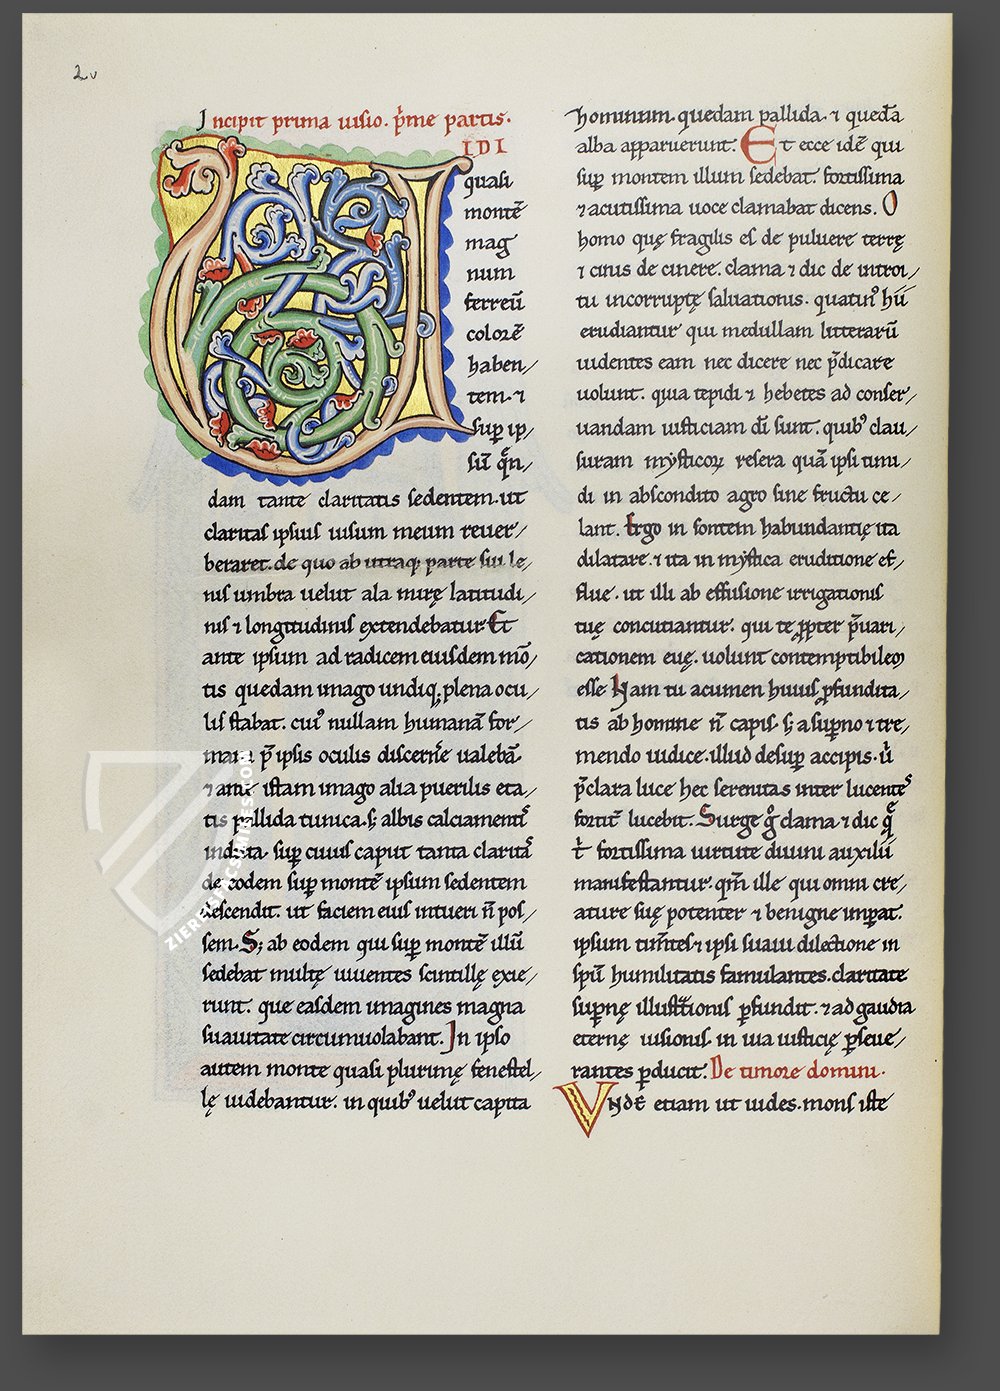 2v
Incipit prima uisio. p̄me partis.
UIDI
quasi
montē
mag
num
ferreū
colorē
haben/
tem. ⁊
sup ip/
sū qn̄/
dam tante claritatis sedentem. ut
claritas ipsius uisum meum reuer/
beraret. de quo ab utraq; parte sui le/
nis umbra uelut ala mirę latitudi/
nis ⁊ longitudinis extendebatur Et
ante ipsum ad radicem eiusdem mō/
tis quedam imago undiq; plena ocu/
lis stabat. cui⁹ nullam humanā for/
mam p̄ ipsis oculis discerne ualebā.
⁊ ante istam imago alia puerilis eta/
tis pallida tunica. s; albis calciamentis
induta. sup cuius caput tanta claritas
de eodem sup montē ipsum sedentem
descendit. ut faciem eius intueri n̄ pos/
sem. S; ab eodem qui sup montē illū
sedebat multę uiuentes scintillę exie/
runt. que easdem imagines magna
suauitate circumuolabant. In ipso
autem monte quasi plurimę fenestel/
lę uidebantur. in quib⁹ uelut capita
hominum quedam pallida. ⁊ quedā
alba apparuerunt. Et ecce idē qui
sup montem illum sedebat. fortissima
⁊ acutissima uoce clamabat dicens. O
homo quę fragilis es de puluere terrę
⁊ cinis de cinere. clama ⁊ dic de introi/
tu incorruptę saluationis. quatin⁹ hii
erudiantur qui medullam litterarū
uidentes eam nec dicere nec p̄dicare
uolunt. quia tepidi ⁊ hebetes ad conser/
uandam iusticiam dī sunt. quib⁹ clau/
suram mysticoꝝ resera quā ipsi timi/
di in abscondito agro sine fructu ce/
lant. Ergo in fontem habundantię ita
dilatare. ⁊ ita in mystica eruditione ef/
flue. ut illi ab effusione irrigationis
tuę concutiantur. qui te ꝓpter p̄uari/
cationem euę. uolunt contemptibilem
esse Nam tu acumen huius ꝓfundita/
tis ab homine n̄ capis. s; a supno ⁊ tre/
mendo iudice. illud desup accipis. u̇
p̄clara luce hec serenitas inter lucentes
fortit̄ lucebit. Surge g̊ clama ⁊ dic q̄
t̄ fortissima uirtute diuini auxilii
manifestantur. qm̄ ille qui omni cre/
ature suę potenter ⁊ benigne imperat.
ipsum tim̄tes ⁊ ipsi suaui dilectione in
spū humilitatis famulantes. claritate
supnę illustrationis ꝑfundit. ⁊ ad gaudia
eternę uisionis. in uia iusticię ꝑseue/
rantes ꝑducit. De timore domini.
Unde etiam ut uides. mons iste
ZIEREIS FACSIMILES.COM